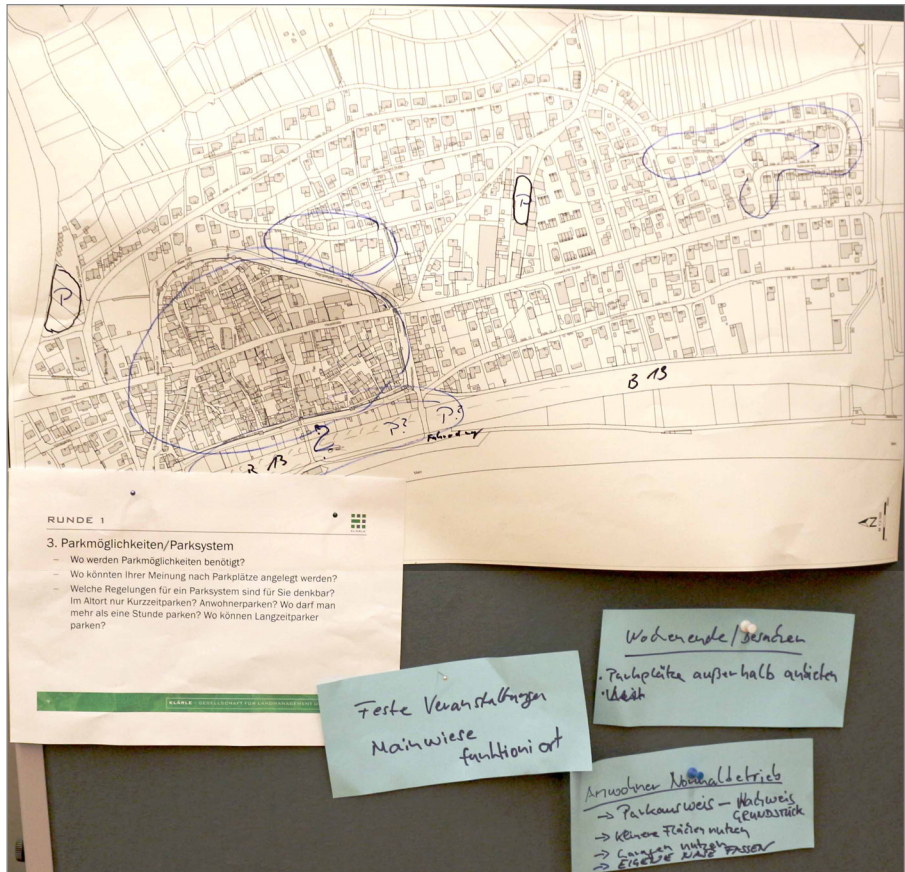 P
P
B 19
P?
P?
?
Fahrradweg
B 13
N
RUNDE 1
3. Parkmöglichkeiten/Parksystem
– Wo werden Parkmöglichkeiten benötigt?
– Wo könnten Ihrer Meinung nach Parkplätze angelegt werden?
– Welche Regelungen für ein Parksystem sind für Sie denkbar?
Im Altort nur Kurzzeitparken? Anwohnerparken? Wo darf man
mehr als eine Stunde parken? Wo können Langzeitparker
parken?
KLÄRLE - GESELLSCHAFT FÜR LANDMANAGEMENT U
Feste Veranstaltungen
Mainwiese
funktioniert
Wochenende/Besucher
· Parkplätze außerhalb anbieten
Anwohner Normalbetrieb
→ Parkausweis – Nachweis
GRUNDSTÜCK
→ kleinere Flächen nutzen
→ Garagen nutzen
→ EIGENE NASE FASSEN